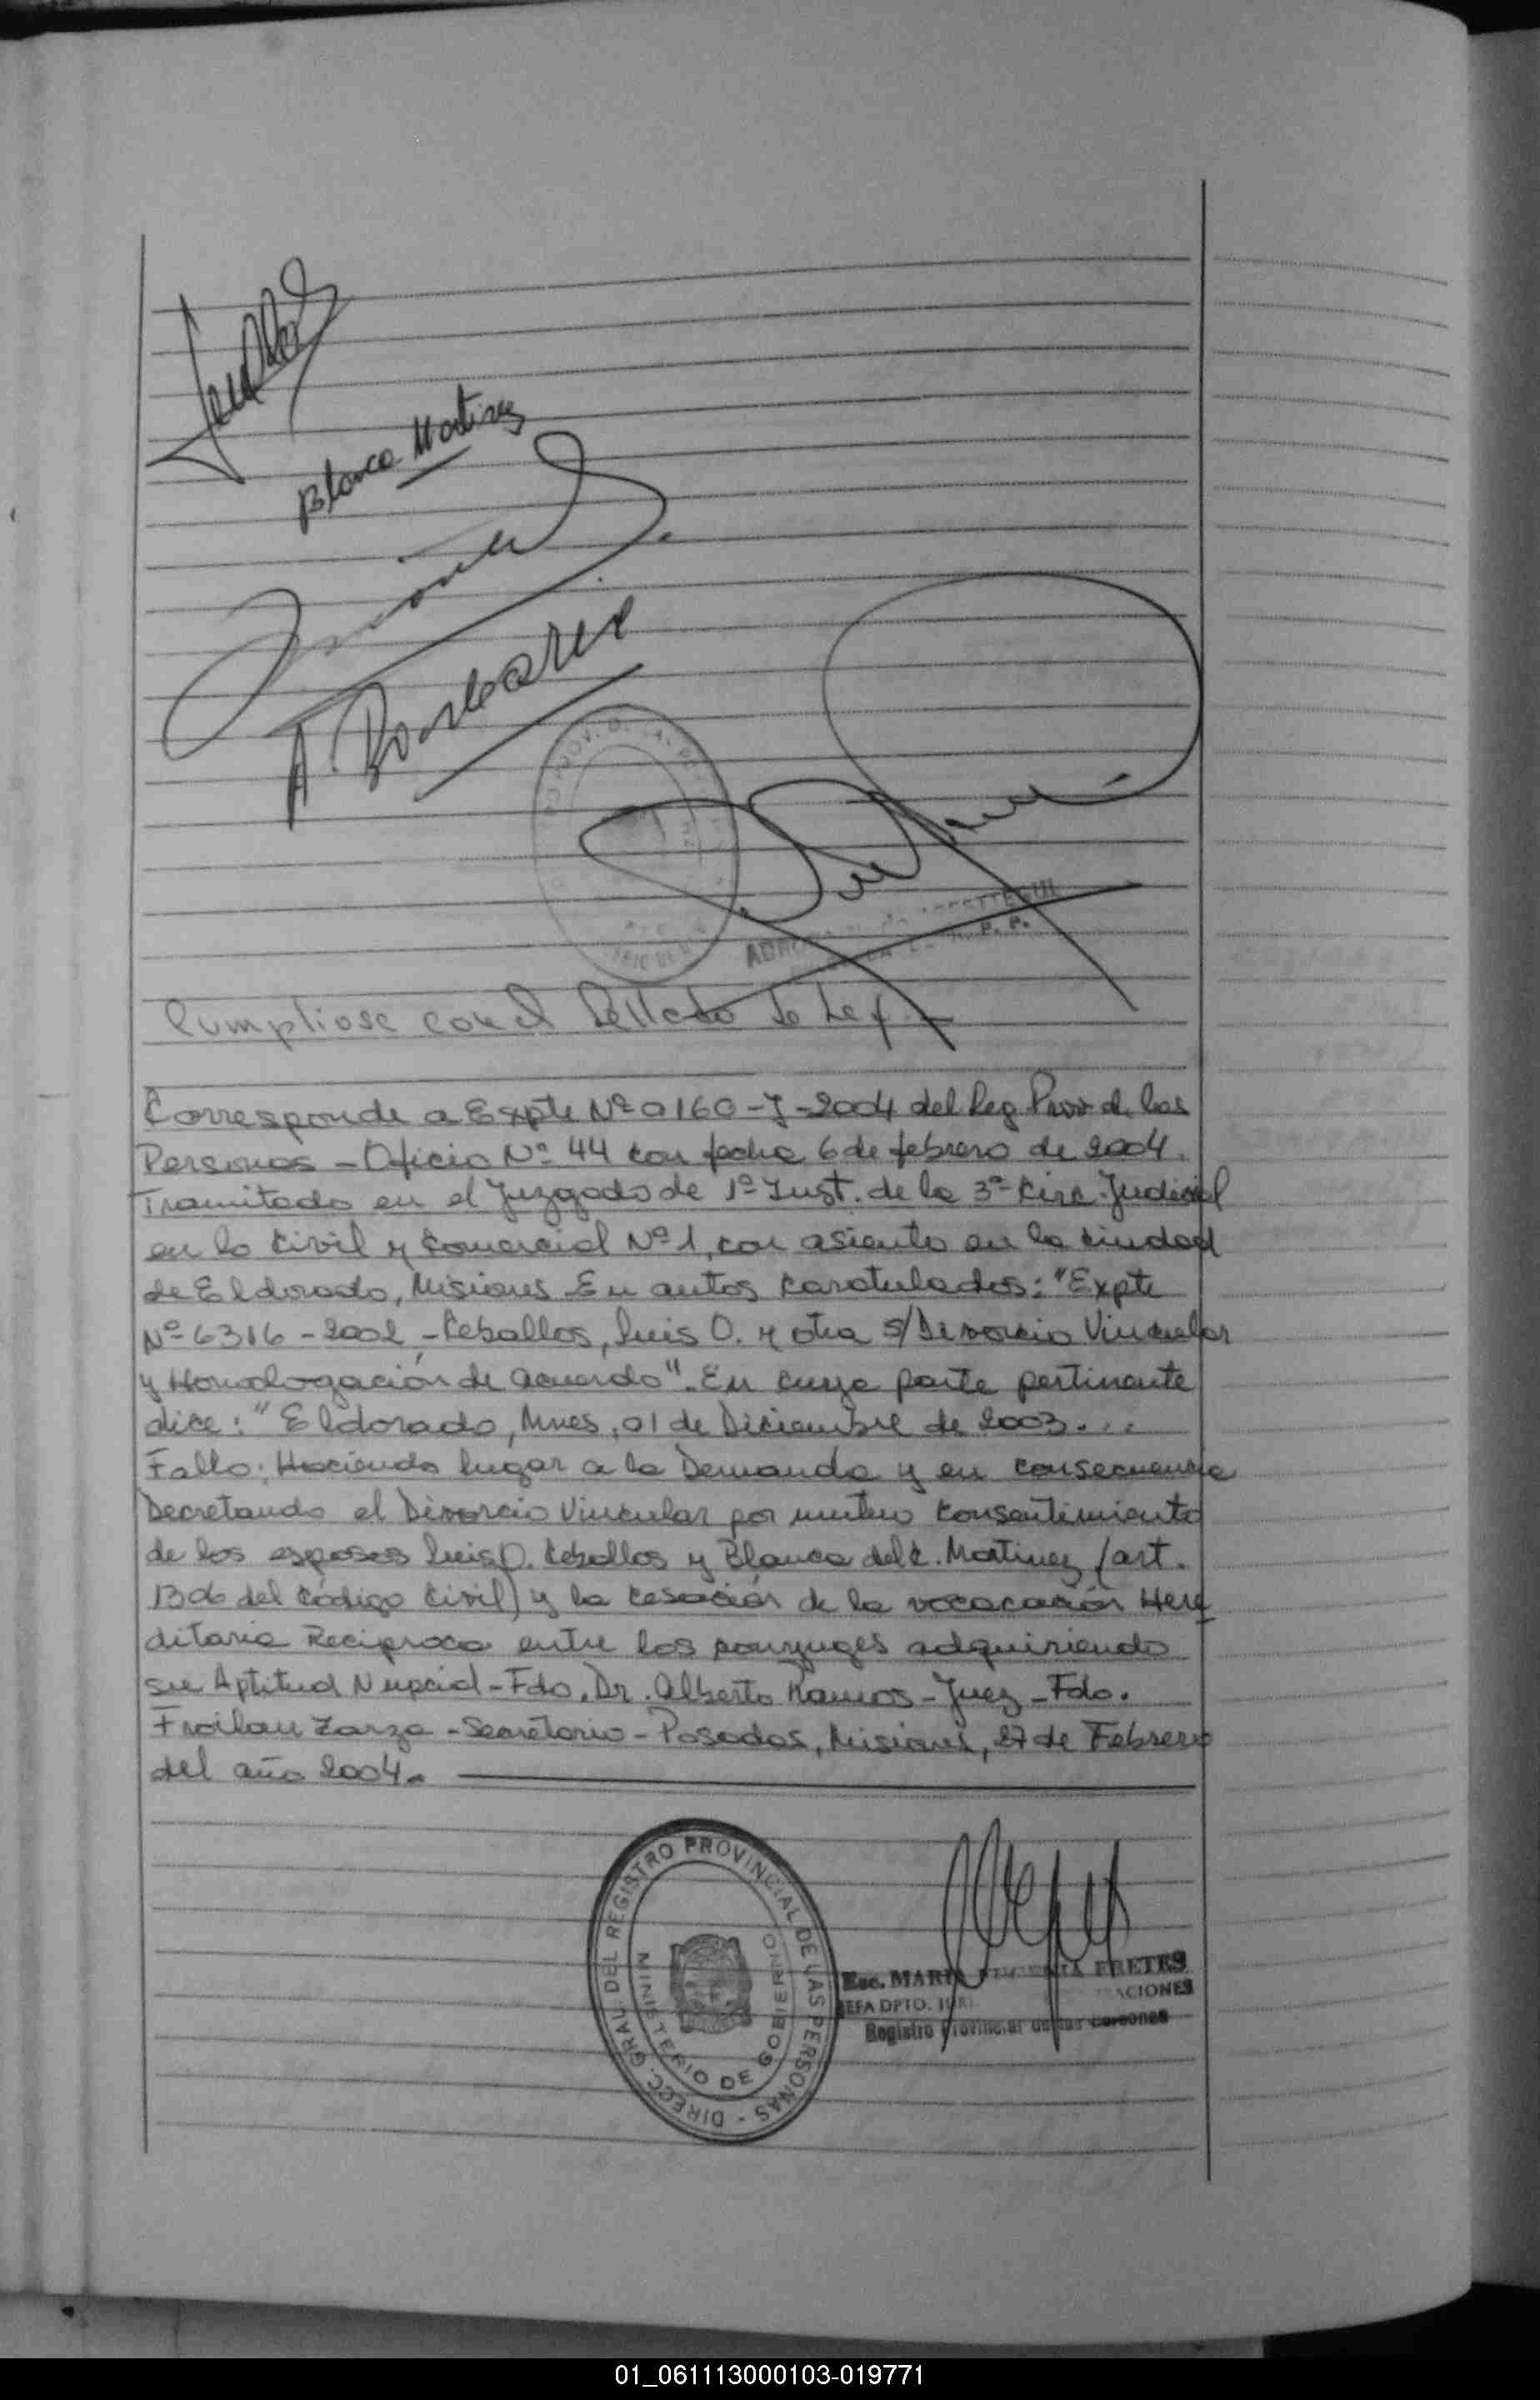 Blanca Martinez
Cumpliose con el Sellado de Ley.-
Corresponde a Expte Nº 0160-J-2004 del Reg. Prov. de las
Personas - Oficio Nº 44 con fecha 6 de febrero de 2004.
Tramitado en el Juzgado de 1º Inst. de la 3º Circ. Judicial
en lo Civil y Comercial Nº 1, con asiento en la ciudad
de Eldorado, Misiones. En autos caratulados: "Expte
Nº 6316 - 2002 - Ceballos, Luis O. y otra s/ Divorcio Vincular
y Homologación de acuerdo". En cuya parte pertinente
dice: "Eldorado, Mnes, 01 de Diciembre de 2003...
Fallo: Haciendo lugar a la Demanda y en consecuencia
Decretando el Divorcio Vincular por mutuo consentimiento
de los esposos Luis O. Ceballos y Blanca del C. Martinez (art.
1306 del Código Civil) y la cesación de la vocacación Here
ditaria Reciproca entre los conyuges adquiriendo
su Aptitud Nupcial - Fdo. Dr. Alberto Ramos - Juez - Fdo.
Froilan Zarza - Secretario - Posadas, Misiones, 27 de Febrero
del año 2004.
DIRECC. GRAL. DEL REGISTRO PROVINCIAL DE LAS PERSONAS -
MINISTERIO DE GOBIERNO
Esc. MARIA FRETES
JEFA DPTO.
Registro Provincial de las Personas
01_061113000103-019771